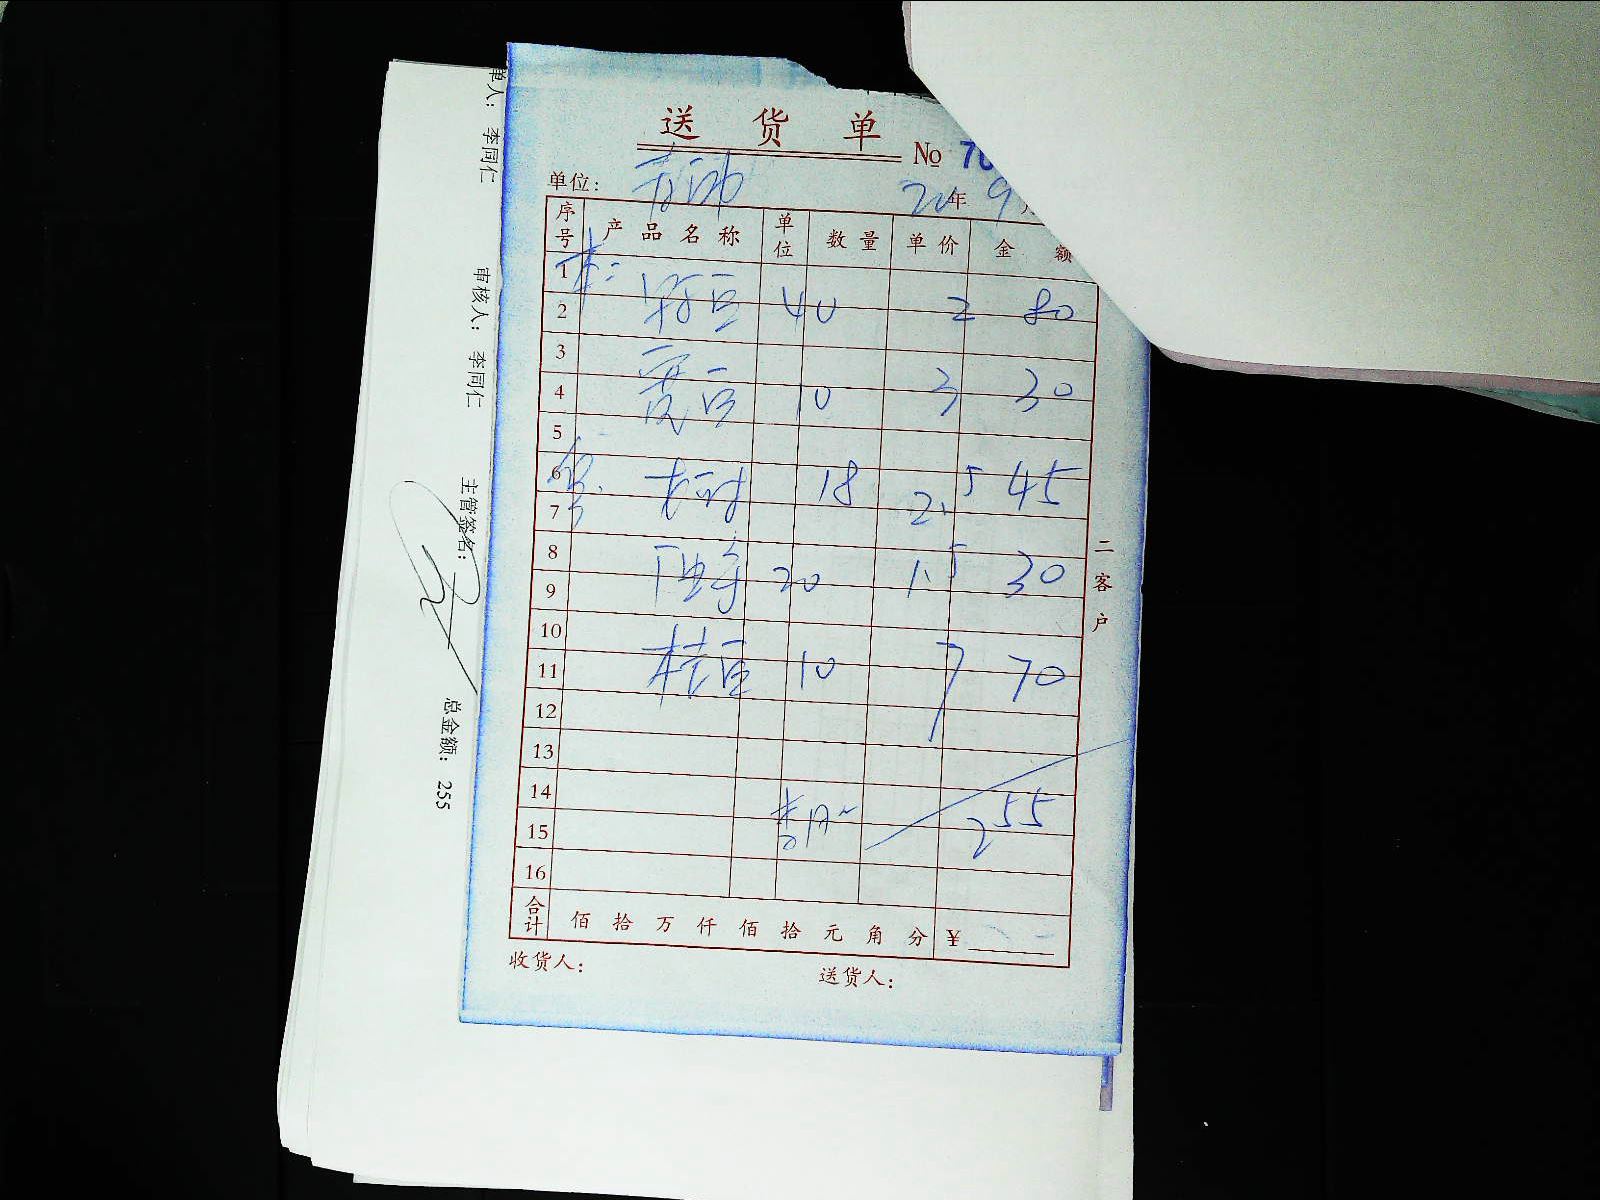 送货单
No 70
单位:
20年 9月
序号 产品名称 单位 数量 单价 金额
1
2 40 2 80
3
4 10 3 30
5
6 18 2.5 45
7
8 20 1.5 30
9
10
11 桂豆 10 7 70
12
13
14 255
15
16
合计 佰拾万仟佰拾元角分 ¥
收货人: 送货人:
二客户
单人: 李同仁 审核人: 李同仁 主管签名: 总金额: 255